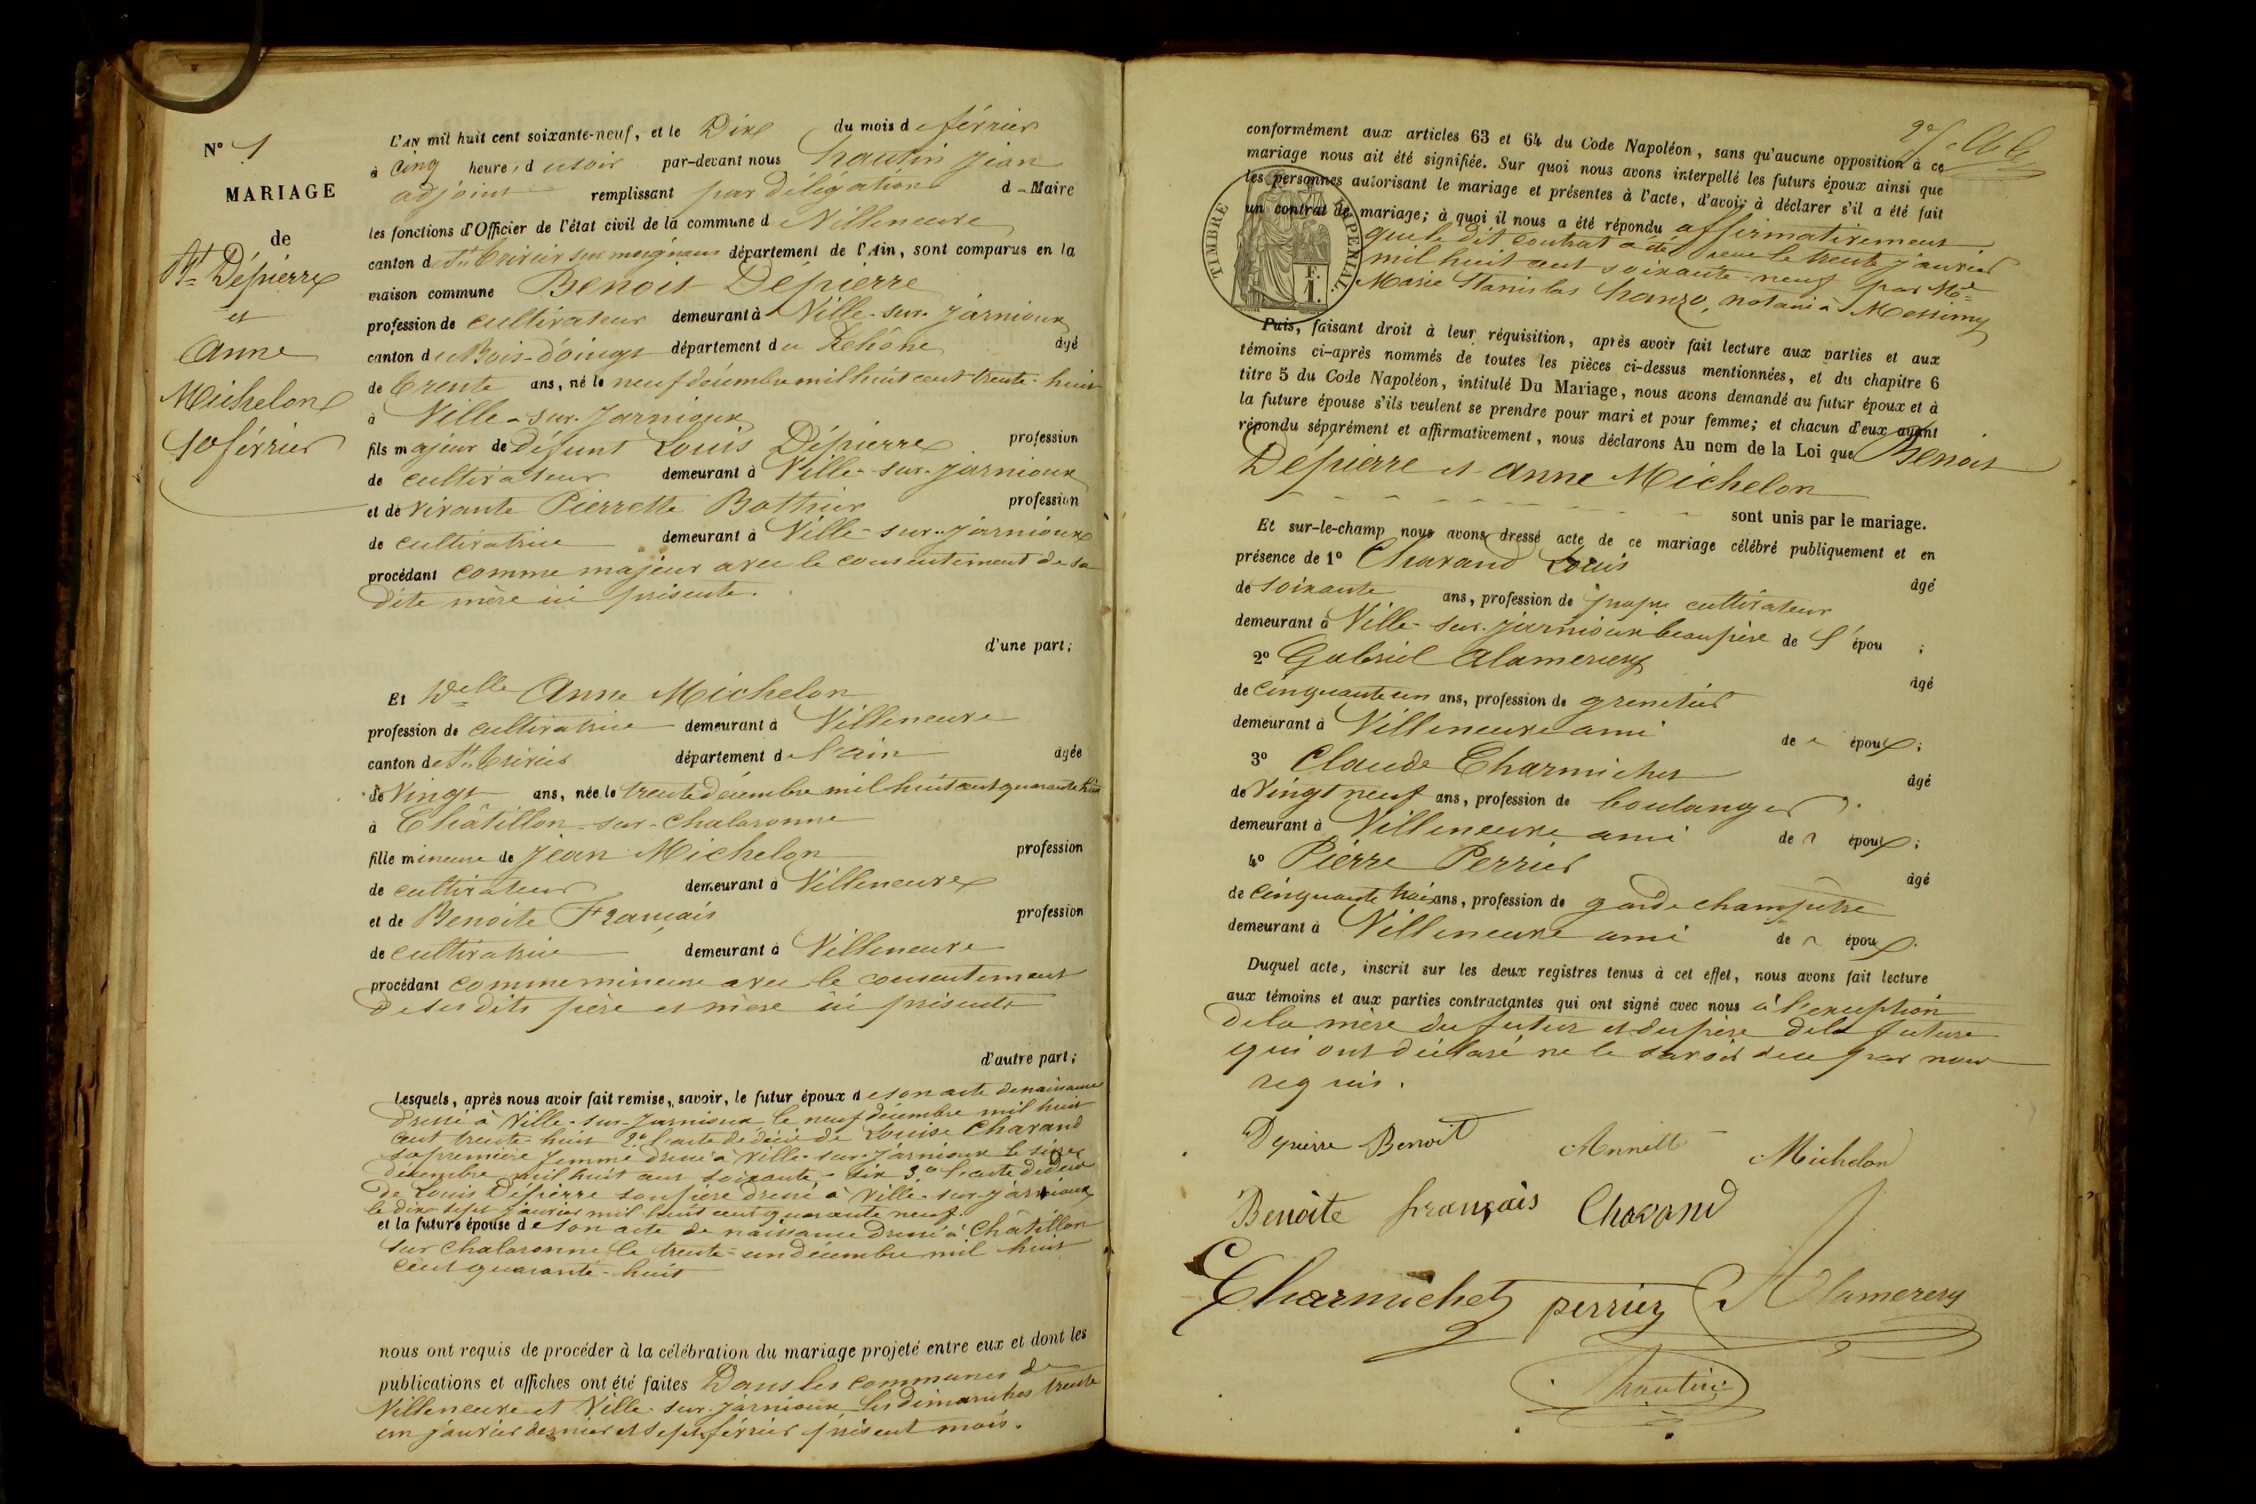 N° 1
MARIAGE
de
Bt Dépierre
et
Anne
Michelon
10 février
L'AN mil huit cent soixante-neuf, et le Dix du mois de février
à Cinq heures du soir par-devant nous hautin Jean
adjoint remplissant par délégation de Maire
les fonctions d'Officier de l'état civil de la commune de Villeneuve
canton de St Trivier sur moignans département de l'Ain, sont comparus en la
maison commune Benoit Dépierre
profession de cultivateur demeurant à Ville-sur-Jarnioux
canton du Bois-d'oingt département du Rhône âgé
de trente ans, né le neuf décembre mil huit cent trente-huit
à Ville-sur-Jarnioux
fils majeur de défunt Louis Dépierre profession
de cultivateur demeurant à Ville-sur-Jarnioux
et de vivante Pierrette Bothier profession
de cultivatrice demeurant à Ville-sur-Jarnioux
procédant comme majeur avec le consentement de sa
dite mère ici présente.
d'une part;
Et Delle Anne Michelon
profession de cultivatrice demeurant à Villeneuve
canton de St Trivier département de l'ain âgée
de Vingt ans, née le trente décembre mil huit cent quarante huit
à Châtillon-sur-Chalaronne
fille mineure de Jean Michelon profession
de cultivateur demeurant à Villeneuve
et de Benoite Français profession
de cultivatrice demeurant à Villeneuve
procédant comme mineure avec le consentement
de ses dits père et mère ici présents
d'autre part;
Lesquels, après nous avoir fait remise, savoir, le futur époux de son acte de naissance
dressé à Ville-sur-Jarnioux le neuf décembre mil huit
cent trente-huit 2° l'acte de décès de Louise Chavand
sa première femme dressé à Ville-sur-Jarnioux le seize
décembre mil huit cent soixante-six 3° l'acte de décès
de Louis Dépierre son père dressé à Ville-sur-Jarnioux
le dix sept janvier mil huit cent quarante neuf.
et la future épouse de son acte de naissance dressé à Châtillon
sur Chalaronne le trente-un décembre mil huit
cent quarante-huit
nous ont requis de procéder à la célébration du mariage projeté entre eux et dont les
publications et affiches ont été faites Dans les communes de
Villeneuve et Ville-sur-Jarnioux les dimanches trente
un janvier dernier et sept février présent mois.
conformément aux articles 63 et 64 du Code Napoléon, sans qu'aucune opposition à ce
mariage nous ait été signifiée. Sur quoi nous avons interpellé les futurs époux ainsi que
les personnes autorisant le mariage et présentes à l'acte, d'avoir à déclarer s'il a été fait
un contrat de mariage; à quoi il nous a été répondu affirmativement
que le dit contrat a été reçu le trente janvier
mil huit cent soixante-neuf par Me
Marie Stanislas hanzo, notaire à Messimy
TIMBRE IMPERIAL.
Puis, faisant droit à leur réquisition, après avoir fait lecture aux parties et aux
témoins ci-après nommés de toutes les pièces ci-dessus mentionnées, et du chapitre 6
titre 5 du Code Napoléon, intitulé Du Mariage, nous avons demandé au futur époux et à
la future épouse s'ils veulent se prendre pour mari et pour femme; et chacun d'eux ayant
répondu séparément et affirmativement, nous déclarons Au nom de la Loi que Benoit
Dépierre et Anne Michelon
sont unis par le mariage.
Et sur-le-champ nous avons dressé acte de ce mariage célébré publiquement et en
présence de 1° Chavand Louis âgé
de soixante ans, profession de propre cultivateur
demeurant à Ville-sur-Jarnioux beaupère de l'épou ;
2° Gabriel Alamercery âgé
de cinquante un ans, profession de grenetier
demeurant à Villeneuve ami de époux ;
3° Claude Charmichet âgé
de Vingt neuf ans, profession de boulanger
demeurant à Villeneuve ami de époux ;
4° Pierre Perrier âgé
de cinquante trois ans, profession de garde champêtre
demeurant à Villeneuve ami de époux.
Duquel acte, inscrit sur les deux registres tenus à cet effet, nous avons fait lecture
aux témoins et aux parties contractantes qui ont signé avec nous à l'exception
de la mère du futur et du père de la future
qui ont déclaré ne le savoir de ce par nous
requis.
Depierre Benoit Annette Michelon
Benoite français Chavand
Charmichet perrier Alamercery
hautin